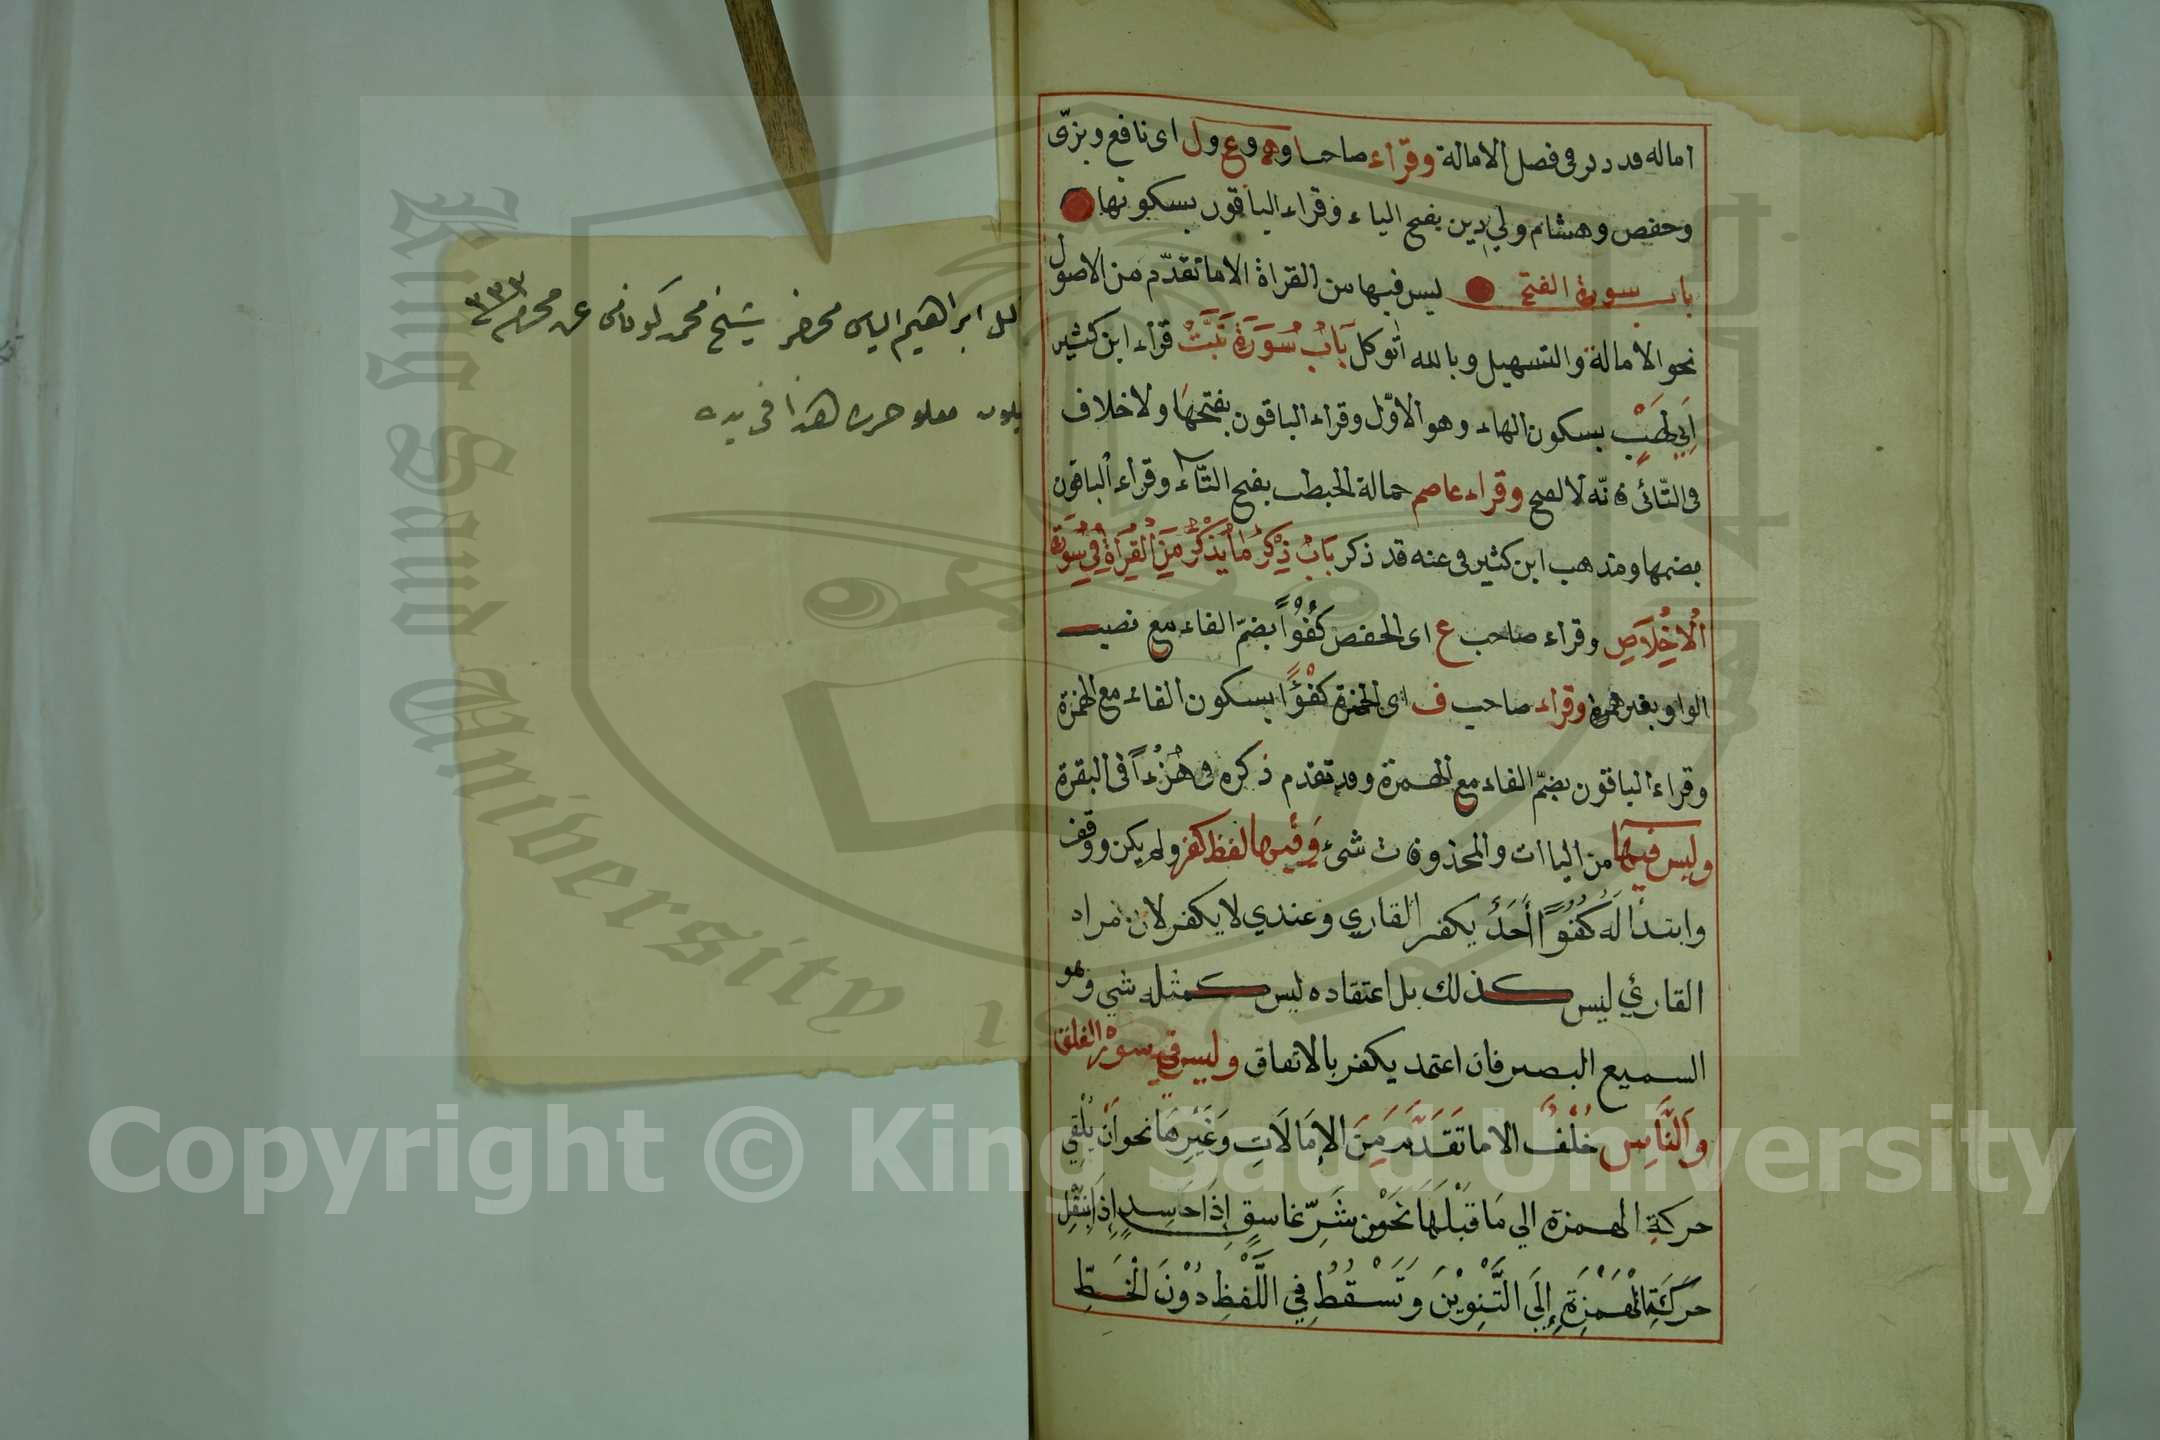 اماله قد ذكر فى فصل الامالة وقراء صاحبا وه وع ول اى نافع وبزّى
وحفص وهشام ولي دين بفتح الياء وقراء الباقون بسكونها
باب سورة الفتح ليس فيها من القراة الا ما تقدّم من الاصول
نحو الامالة والتسهيل وبالله اتوكل بَابُ سُورَةِ تَبَّتْ قراء ابن كثير
اَبِي لَهْبٍ بسكون الهاء وهو الاوّل وقراء الباقون بفتحها ولا خلاف
فى الثّانى فانّه لا لفتح وقراء عاصم حمالة الحطب بفتح التّاء وقراء الباقون
بضمها ومذهب ابن كثير فى عنه قد ذكر بَابُ ذِكْرِ مَا يُذْكَرُ مِنَ الْقِرَاةِ فِي سُورَةِ
الْاِخْلَاصِ وقراء صاحب ع اى الحفص كُفُوًا بضمّ الفاء مع نصب
الواو بغير همزة وقراء صاحب ف اى الحمزة كُفْؤًا بسكون الفاء مع الهمزة
وقراء الباقون بضمّ الفاء مع الهمزة وقد تقدم ذكره فى هُزُءاً فى البقرة
وليس فيها من الياات والمحذوفات شىء وَفيها لفظ كفر ولم يكن ووقف
وابتدأ لَهُ كُفُوًا أَحَدٌ يكفر القاري وعندي لا يكفر لان مراد
القارئ ليس كذلك بل اعتقاده ليس كمثله شي وهو
السميع البصير فان اعتمد يكفر بالاتفاق وليس في سورة الفلق
وَالنَّاسِ خُلْفٌ الا ما تَقَدَّمَ مِنَ الإِمَالَاتِ وَغَيْرِهَا نحو أَنْ يُلْقِي
حركةِ الهمزة الي مَا قَبْلَهَا نَحْوَ مِن شَرِّ غاسقٍ إِذَا حَاسِدٍ إِذَا يَنْقُل
حَرَكَةِ الْهَمْزَةِ إِلَي التَّنْوِيْنِ وَتَسْقُطُ فِي اللَّفْظِ دُوْنَ الْخَطِّ
ابراهيم الياس محضر شيخ محمد عن محرم ٣٣٣
هذا فى يده
King Saud University
1957
Copyright © King Saud University